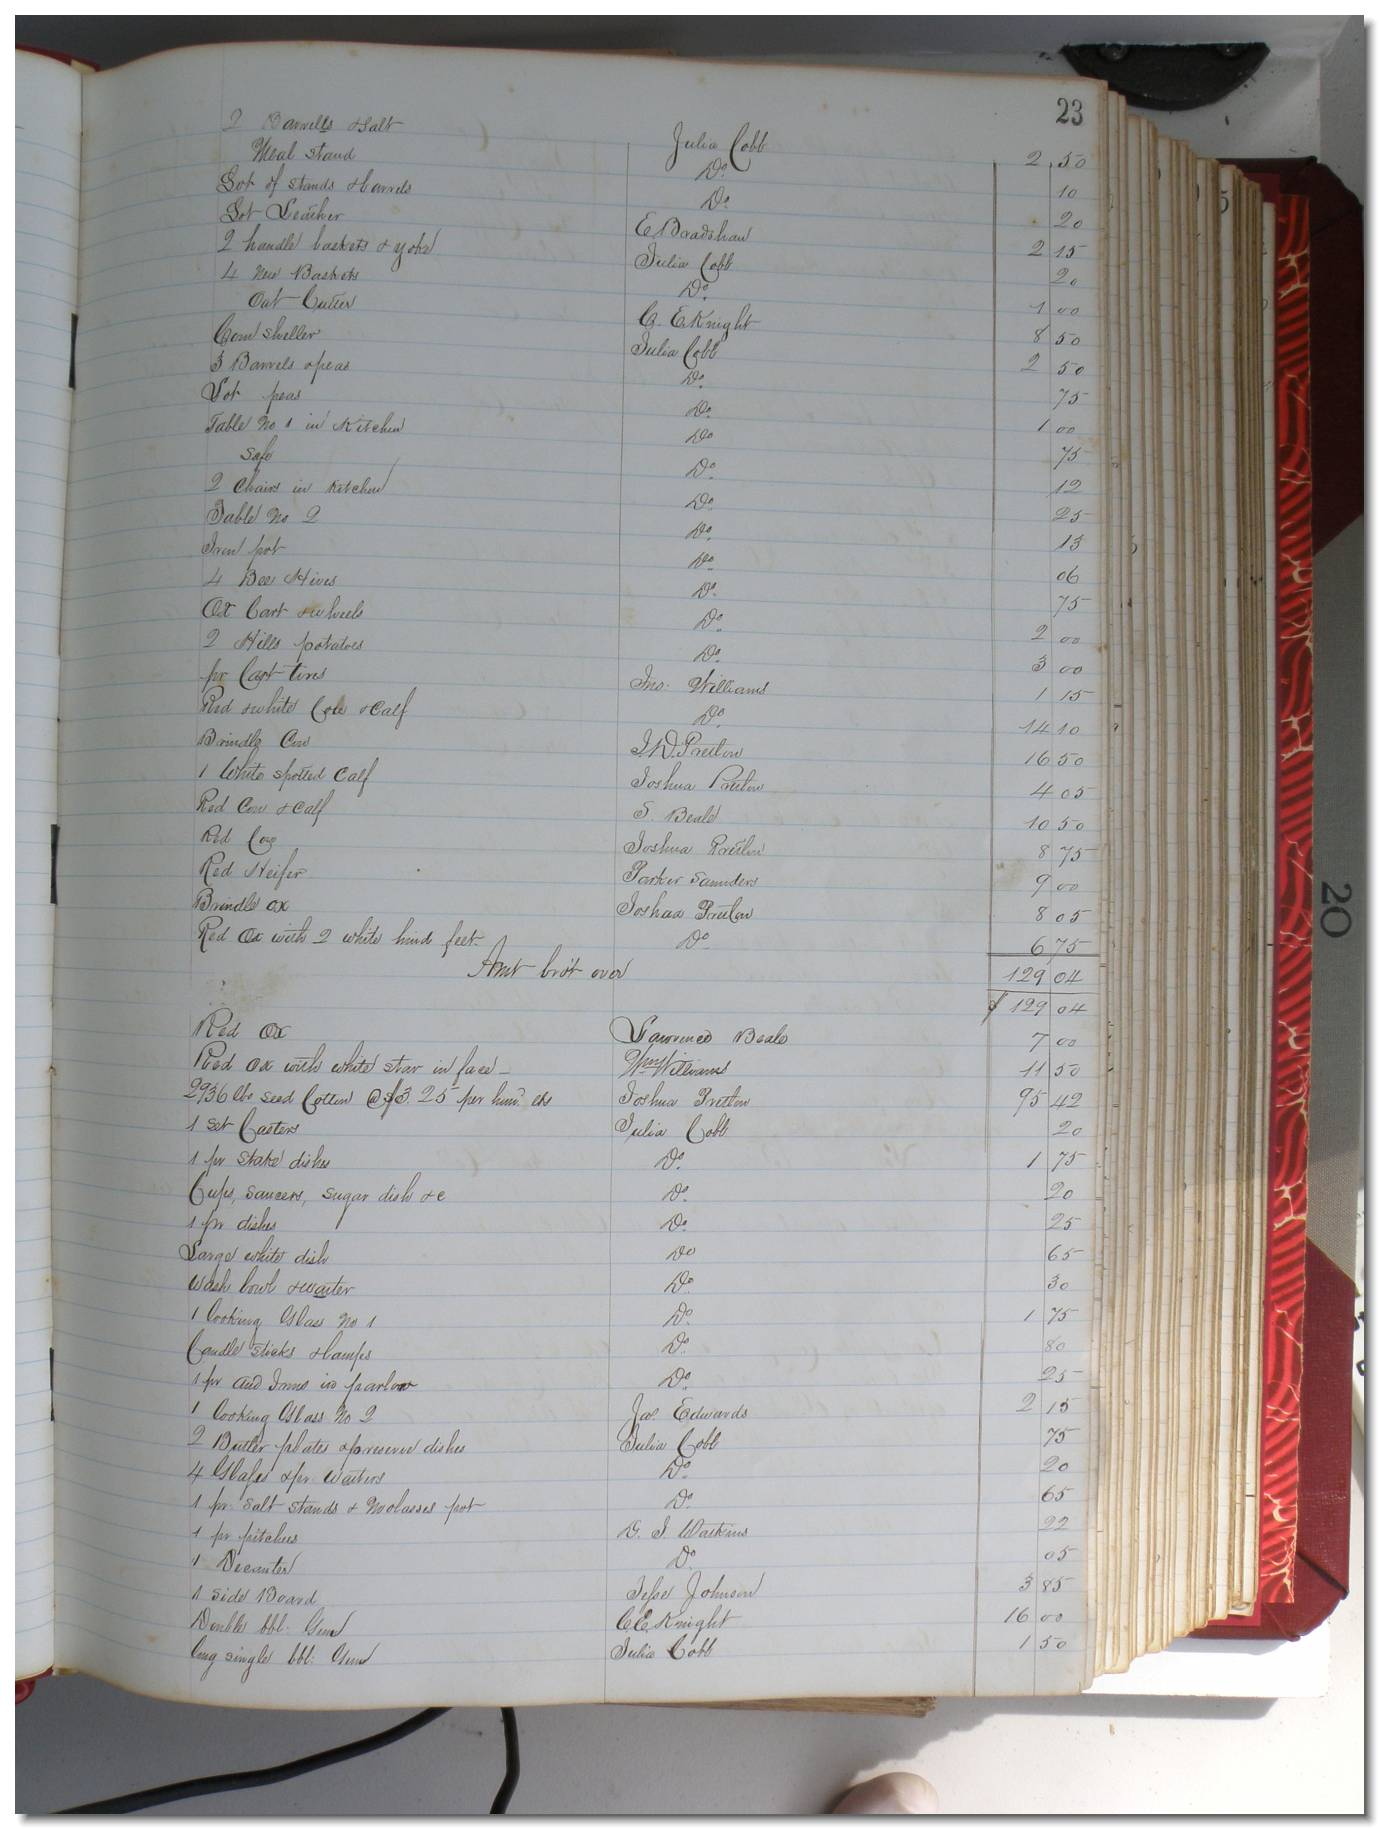 23
2 Barrells & Salt Julia Cobb 2 50
Meal stand Do 10
Lot of stands & barrels Do 20
Lot Leather E Bradshaw 2 15
2 handle baskets & yoke Julia Cobb 20
4 new Baskets Do 1 00
Oat Cutter C. E Knight 8 50
Corn sheller Julia Cobb 2 50
3 Barrels & peas Do 75
Lot peas Do 1 00
Table No 1 in Kitchen Do 75
Safe Do 12
2 Chairs in Kitchen Do 25
Table No 2 Do 13
Iron pot Do 06
4 Bee Hives Do 75
Ox Cart & wheels Do 2 00
2 Hills potatoes Do 3 00
pr Cart tires Jno. Williams 1 15
Red & white Cow & Calf Do 14 10
Brindle Cow J. D. Pretlow 16 50
1 White spotted Calf Joshua Pretlow 4 05
Red Cow & Calf S. Beale 10 50
Red Cow Joshua Pretlow 8 75
Red Heifer Parker Saunders 9 00
Brindle ox Joshua Pretlow 8 05
Red Ox with 2 white hind feet Do 6 75
129 04
Amt bro't over $ 129 04
Red Ox Lawrence Beale 7 00
Red ox with white star in face Wm Williams 11 50
2936 lbs Seed Cotton @ $3.25 per hun. lbs Joshua Pretlow 95 42
1 Set Casters Julia Cobb 20
1 pr Stake dishes Do 1 75
Cups, saucers, sugar dish &c Do 20
1 pr dishes Do 25
Large white dish Do 65
Wash bowl & waiter Do 30
1 Looking Glass No 1 Do 1 75
Candle sticks & lamps Do 80
1 pr and Irons in parlor Do 25
1 Looking Glass No 2 Jas. Edwards 2 15
2 Butter plates & preserve dishes Julia Cobb 75
4 Glasses & pr. waiters Do 20
1 pr. Salt Stands & Molasses pot Do 65
1 pr pitchers D. J. Watkins 22
1 Decanter Do 05
1 Side Board Jesse Johnson 3 85
Double bbl. Gun C E Knight 16 00
Long single bbl. Gun Julia Cobb 1 50
20